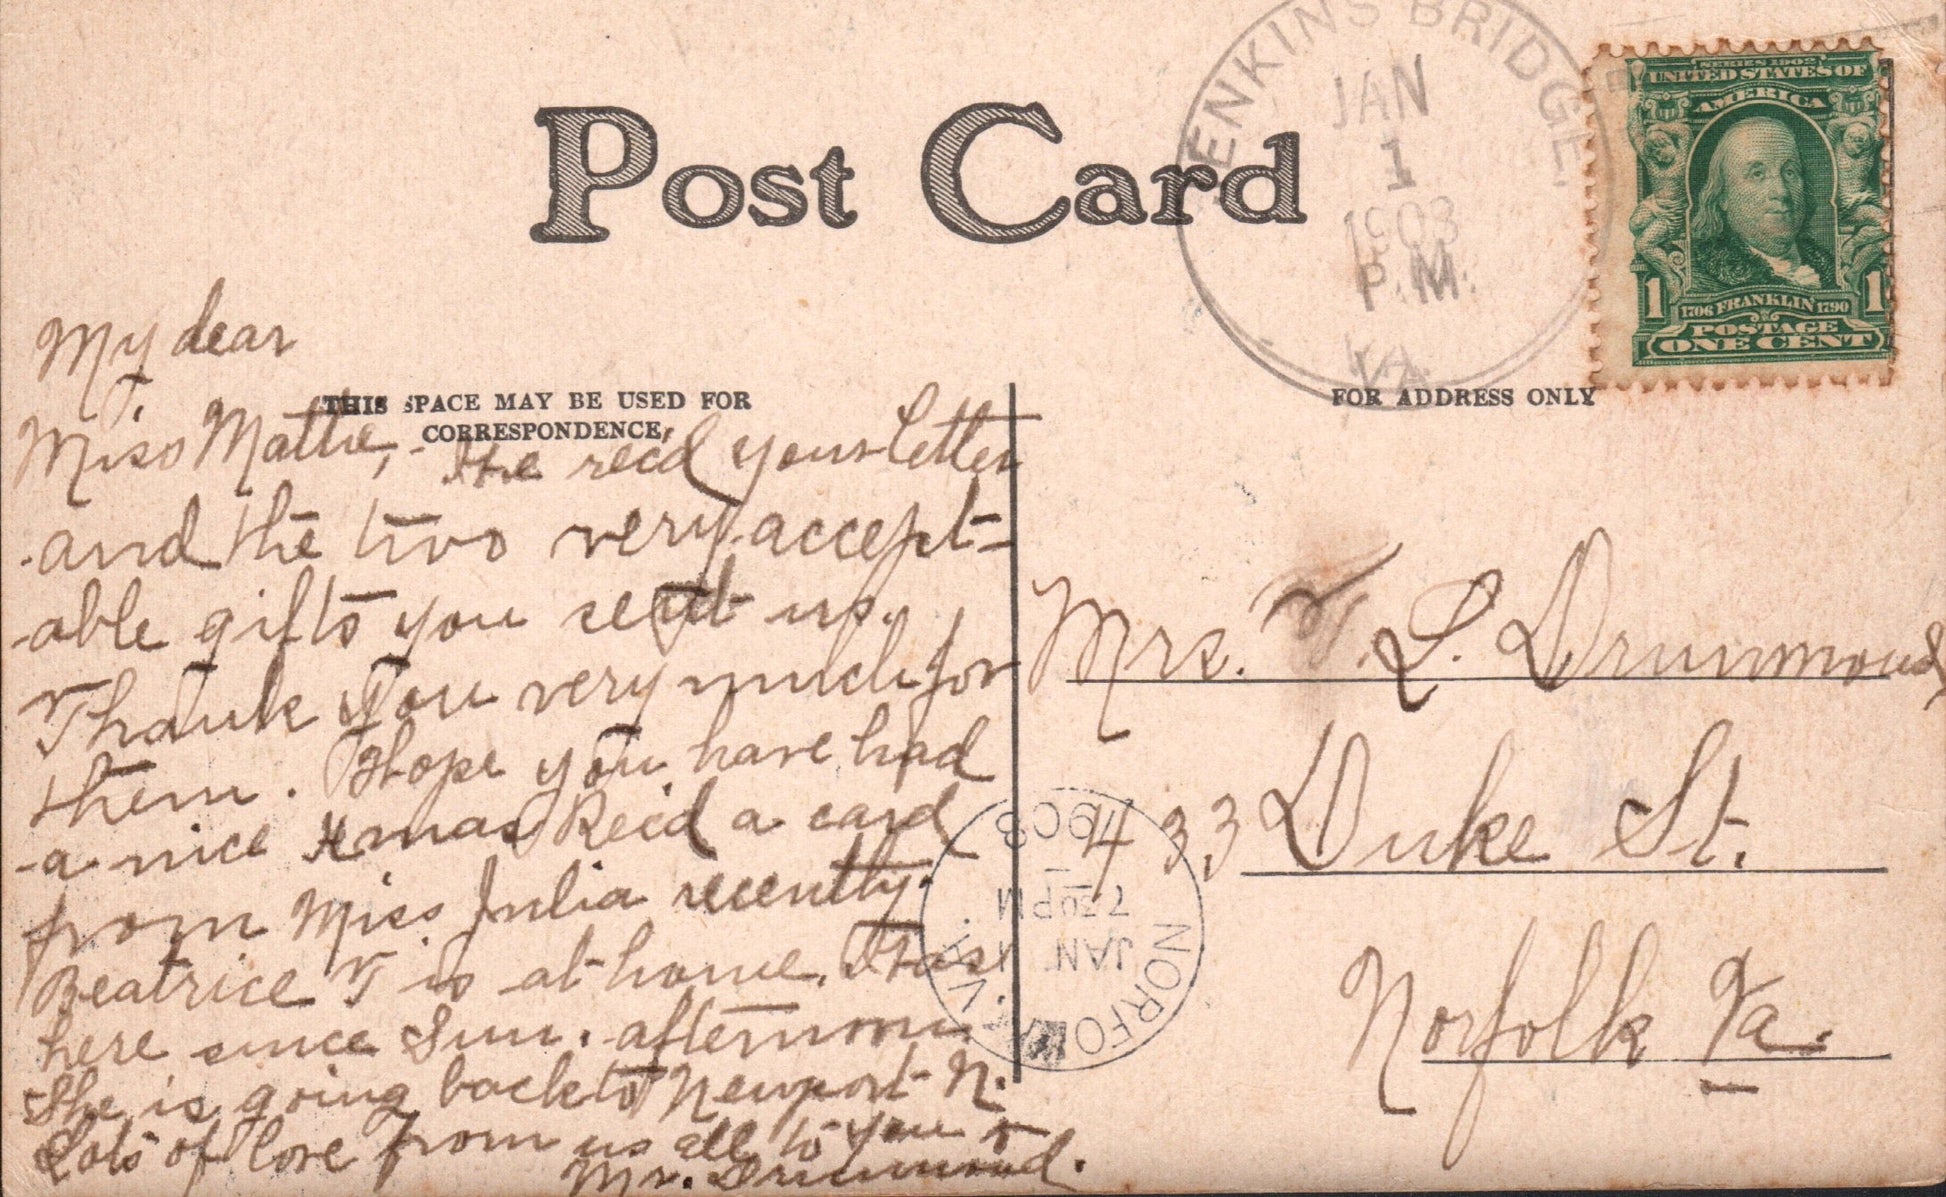 Post Card
JENKINS BRIDGE,
JAN
1
1908
P.M.
VA.
SERIES 1902
UNITED STATES OF
AMERICA
1 1706 FRANKLIN 1790 1
POSTAGE
ONE CENT
THIS SPACE MAY BE USED FOR
CORRESPONDENCE,
FOR ADDRESS ONLY
My dear
Miss Mattie,- We rec'd your letter
and the two very accept-
able gifts you sent us.
Thank you very much for
them. Hope you have had
a nice Xmas. Rec'd a card
from Miss Julia recently.
Beatrice T is at home. Has
here since Sun. afternoon
She is going back to Newport N.
Lots of love from us all to you &
Mr. Drummond.
Mrs. W. L. Drummond
433 Duke St.
Norfolk Va.
NORFOLK, VA.
JAN 1
7 30 PM
1908